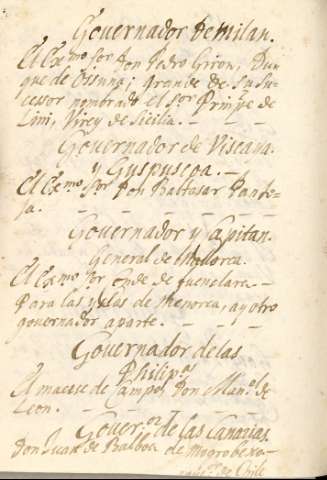 Governador de Milan.
El Ex.mo Sor Don Pedro Giron, Du
que de Ossuna; grande de su Su-
cessor nombrado el Sor Prinçe de
Lini, Virey de Sicilia. -
Governador de Viscaya.
y Guspuscoa. -
El Ex.mo Sor Don Baltasar Panto-
ja. - - - - -
Governador y Capitan.
General de Mallorca.
El Ex.mo Sor Conde de fuenclara. -
Para las yslas de Menorca, ay otro
governador aparte. - - -
Governador de las
Philip.s
El maesse de Campo Don Man.l de
Leon. - - - -
Gover.or de las Canarias.
Don Juan de Balboa de Mogrobexo -
de Chile